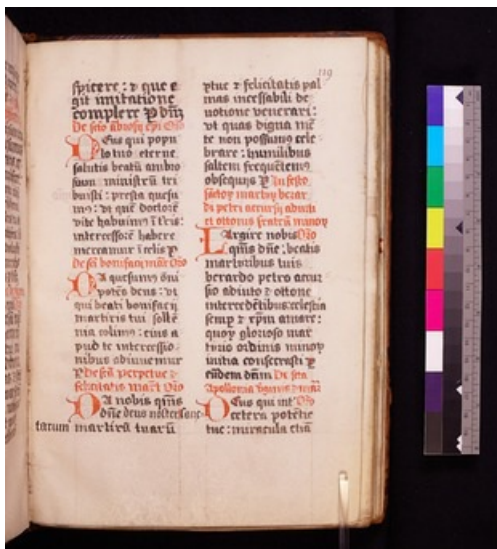 119
spicere : ⁊ que e
git imitatione
complere P dñm
De scõ ambrosi epi Oro
Deus qui popu
lo tuo eterne
salutis beatū ambro
sium ministrū tri
buisti : presta quesu
mꝰ : vt quē doctorē
vite habuimꝰ ī tris :
intercessorē habere
mereamur ī celis p
De scõ bonifacij mar̃ Oro
Da quesumꝰ õni
potēs deus : vt
qui beati bonifacij
martiris tui sollē
nia colimꝰ : eius a
pud te intercessio
nibus adiuuemur
P De scīs perpetue ⁊
felicitatis mar̃t Oro
Da nobis qm̃s
dñe deus noster sanc
tarum martirū tuarū
ptue ⁊ felicitatis pal
mas incessabili de
uotione venerari :
vt quas digna mē
te non possumꝰ cele
brare : humilibus
saltem frequētemꝰ
obsequijs P In festo
sanctoꝝ martirꝝ berar
di petri accursij adiuti
et ottonis fratrū minoꝝ
Largire nobis Oro
qm̃s dñe : beatis
martiribus tuis
berardo petro accur
sio adiuto ⁊ ottone
intercedētibus : celestia
semp ⁊ xp̄m amare :
quoꝝ glorioso mar
tirio ordinis minoꝝ
initia consecrasti P
eūdem dñm De scã
Apollonia vginis ⁊ mar̃
Deus qui int' Oro
cetera potētie
tue : miracula etiā